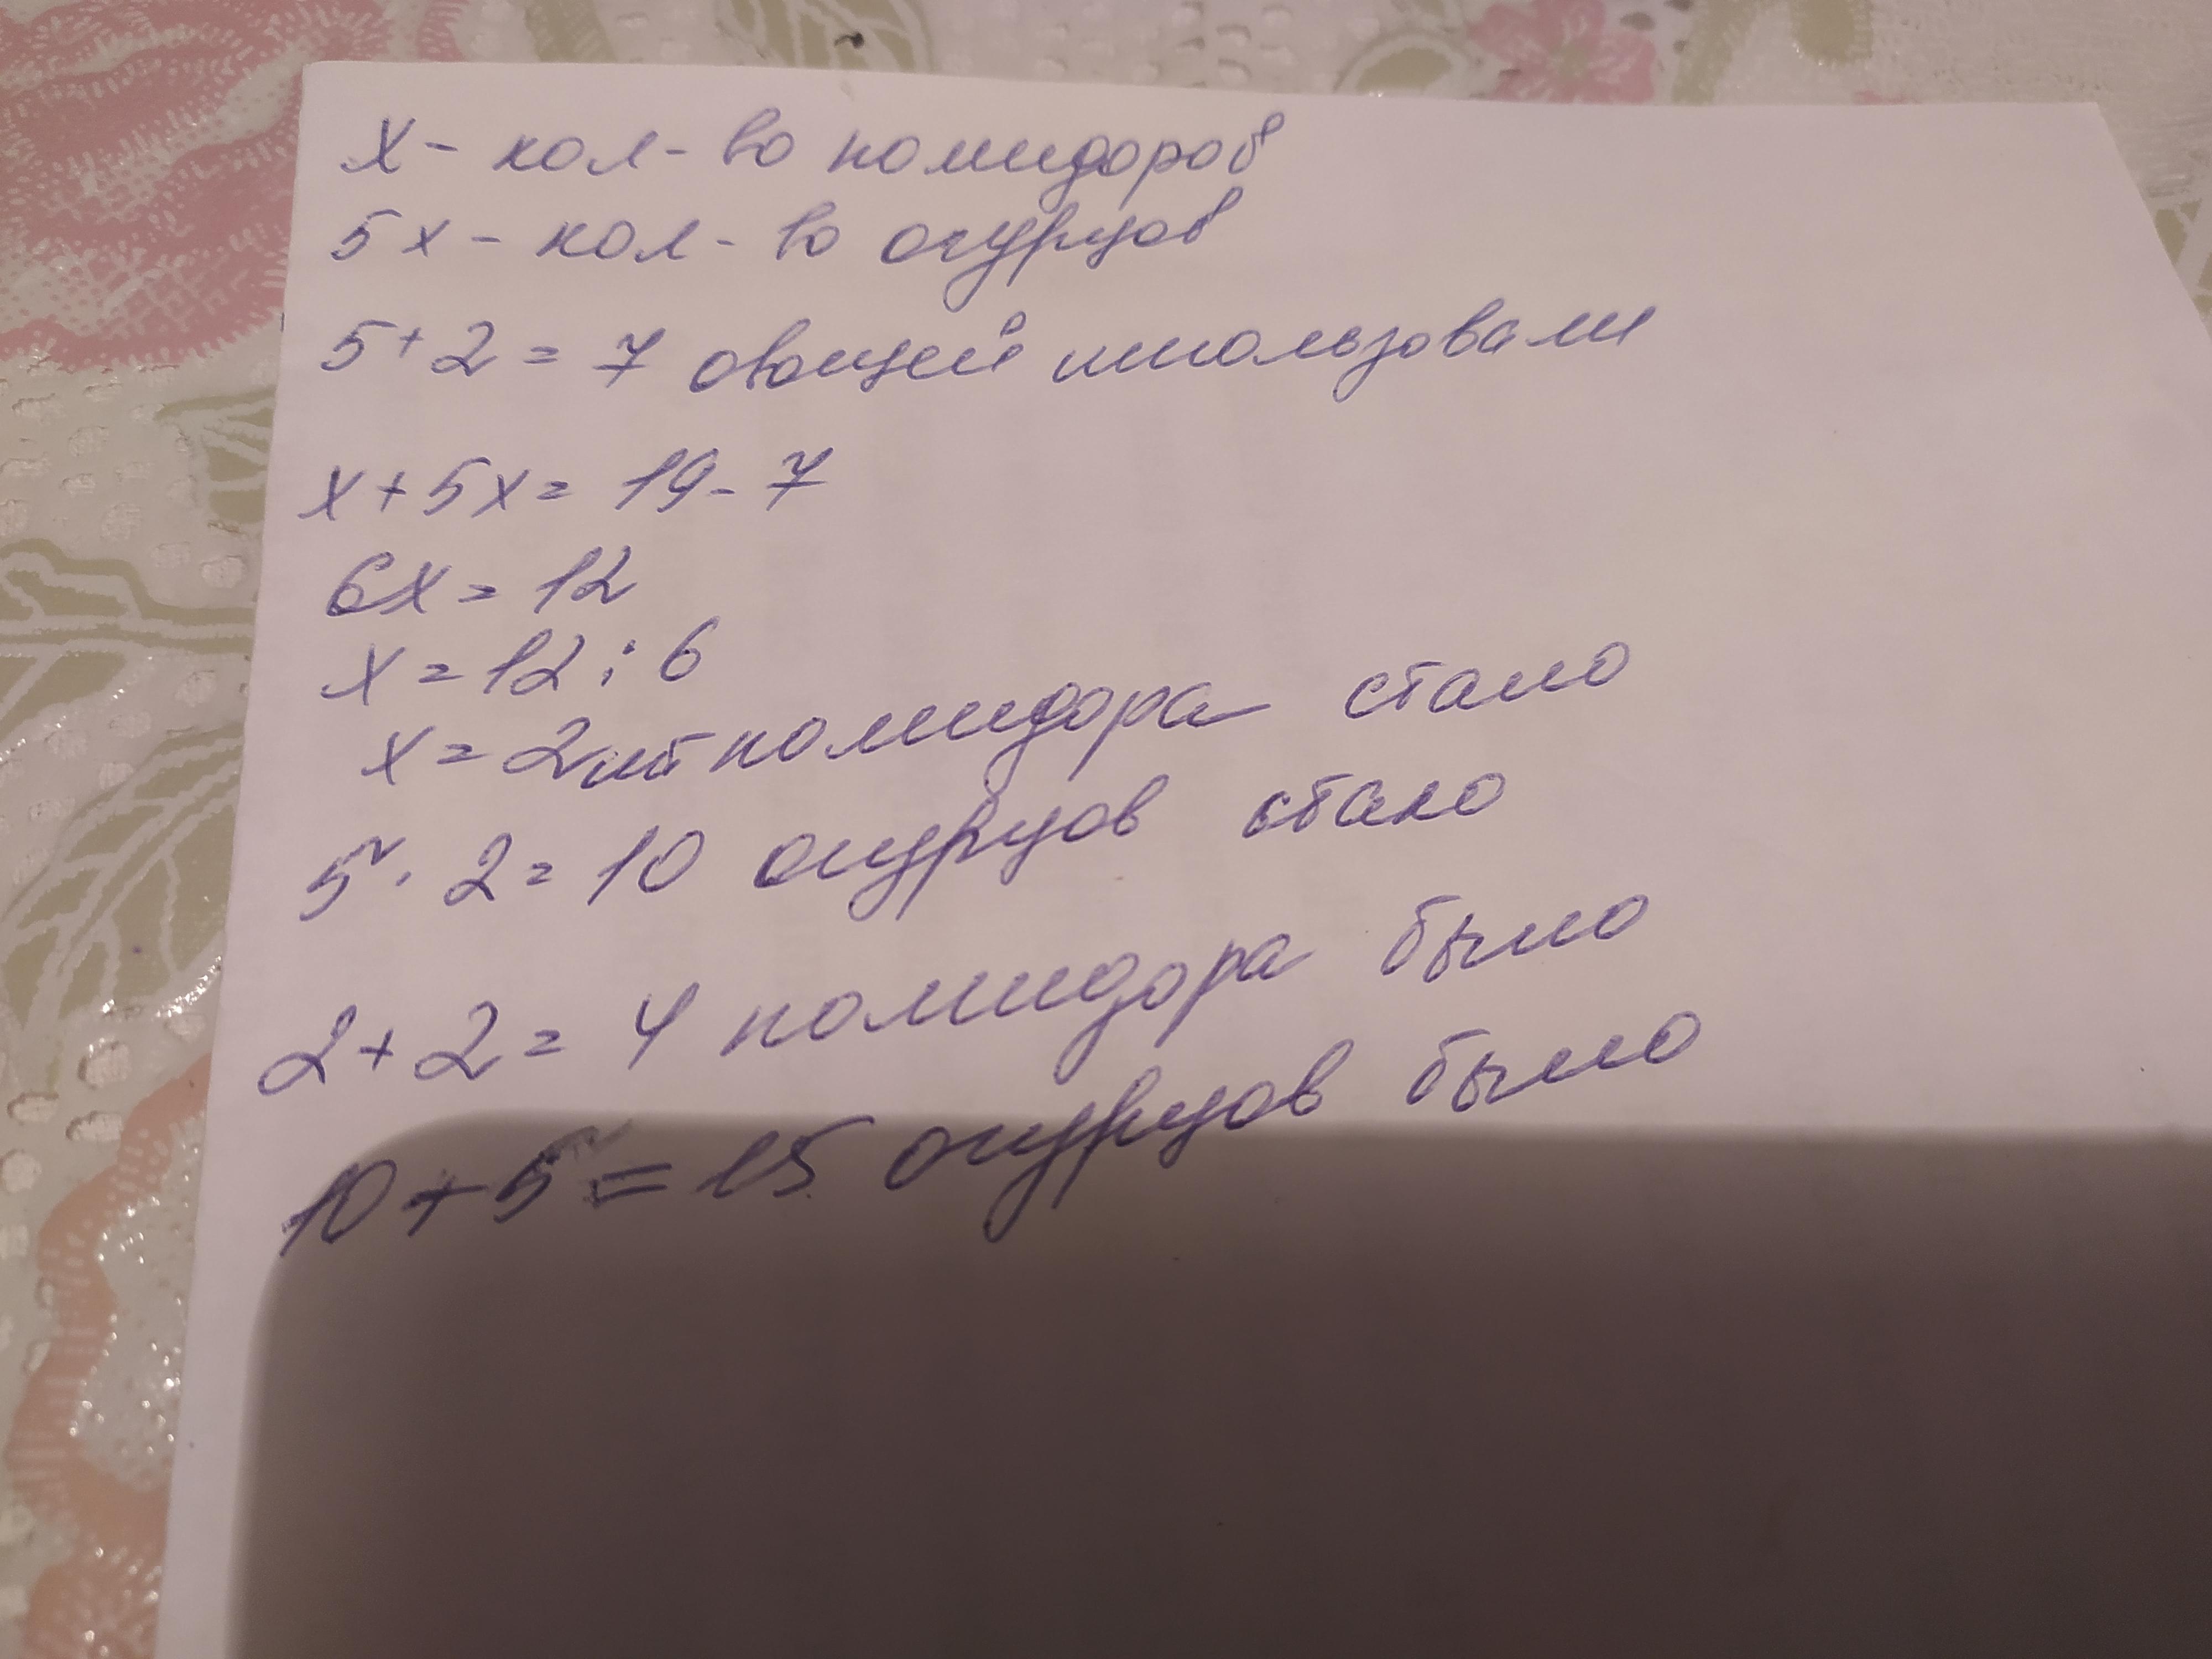 х - кол-во помидоров
5х - кол-во огурцов
5+2=7 овощей использовали
х+5х=19-7
6х=12
х=12:6
х=2шт помидора стало
5·2=10 огурцов стало
2+2=4 помидора было
10+5=15 огурцов было